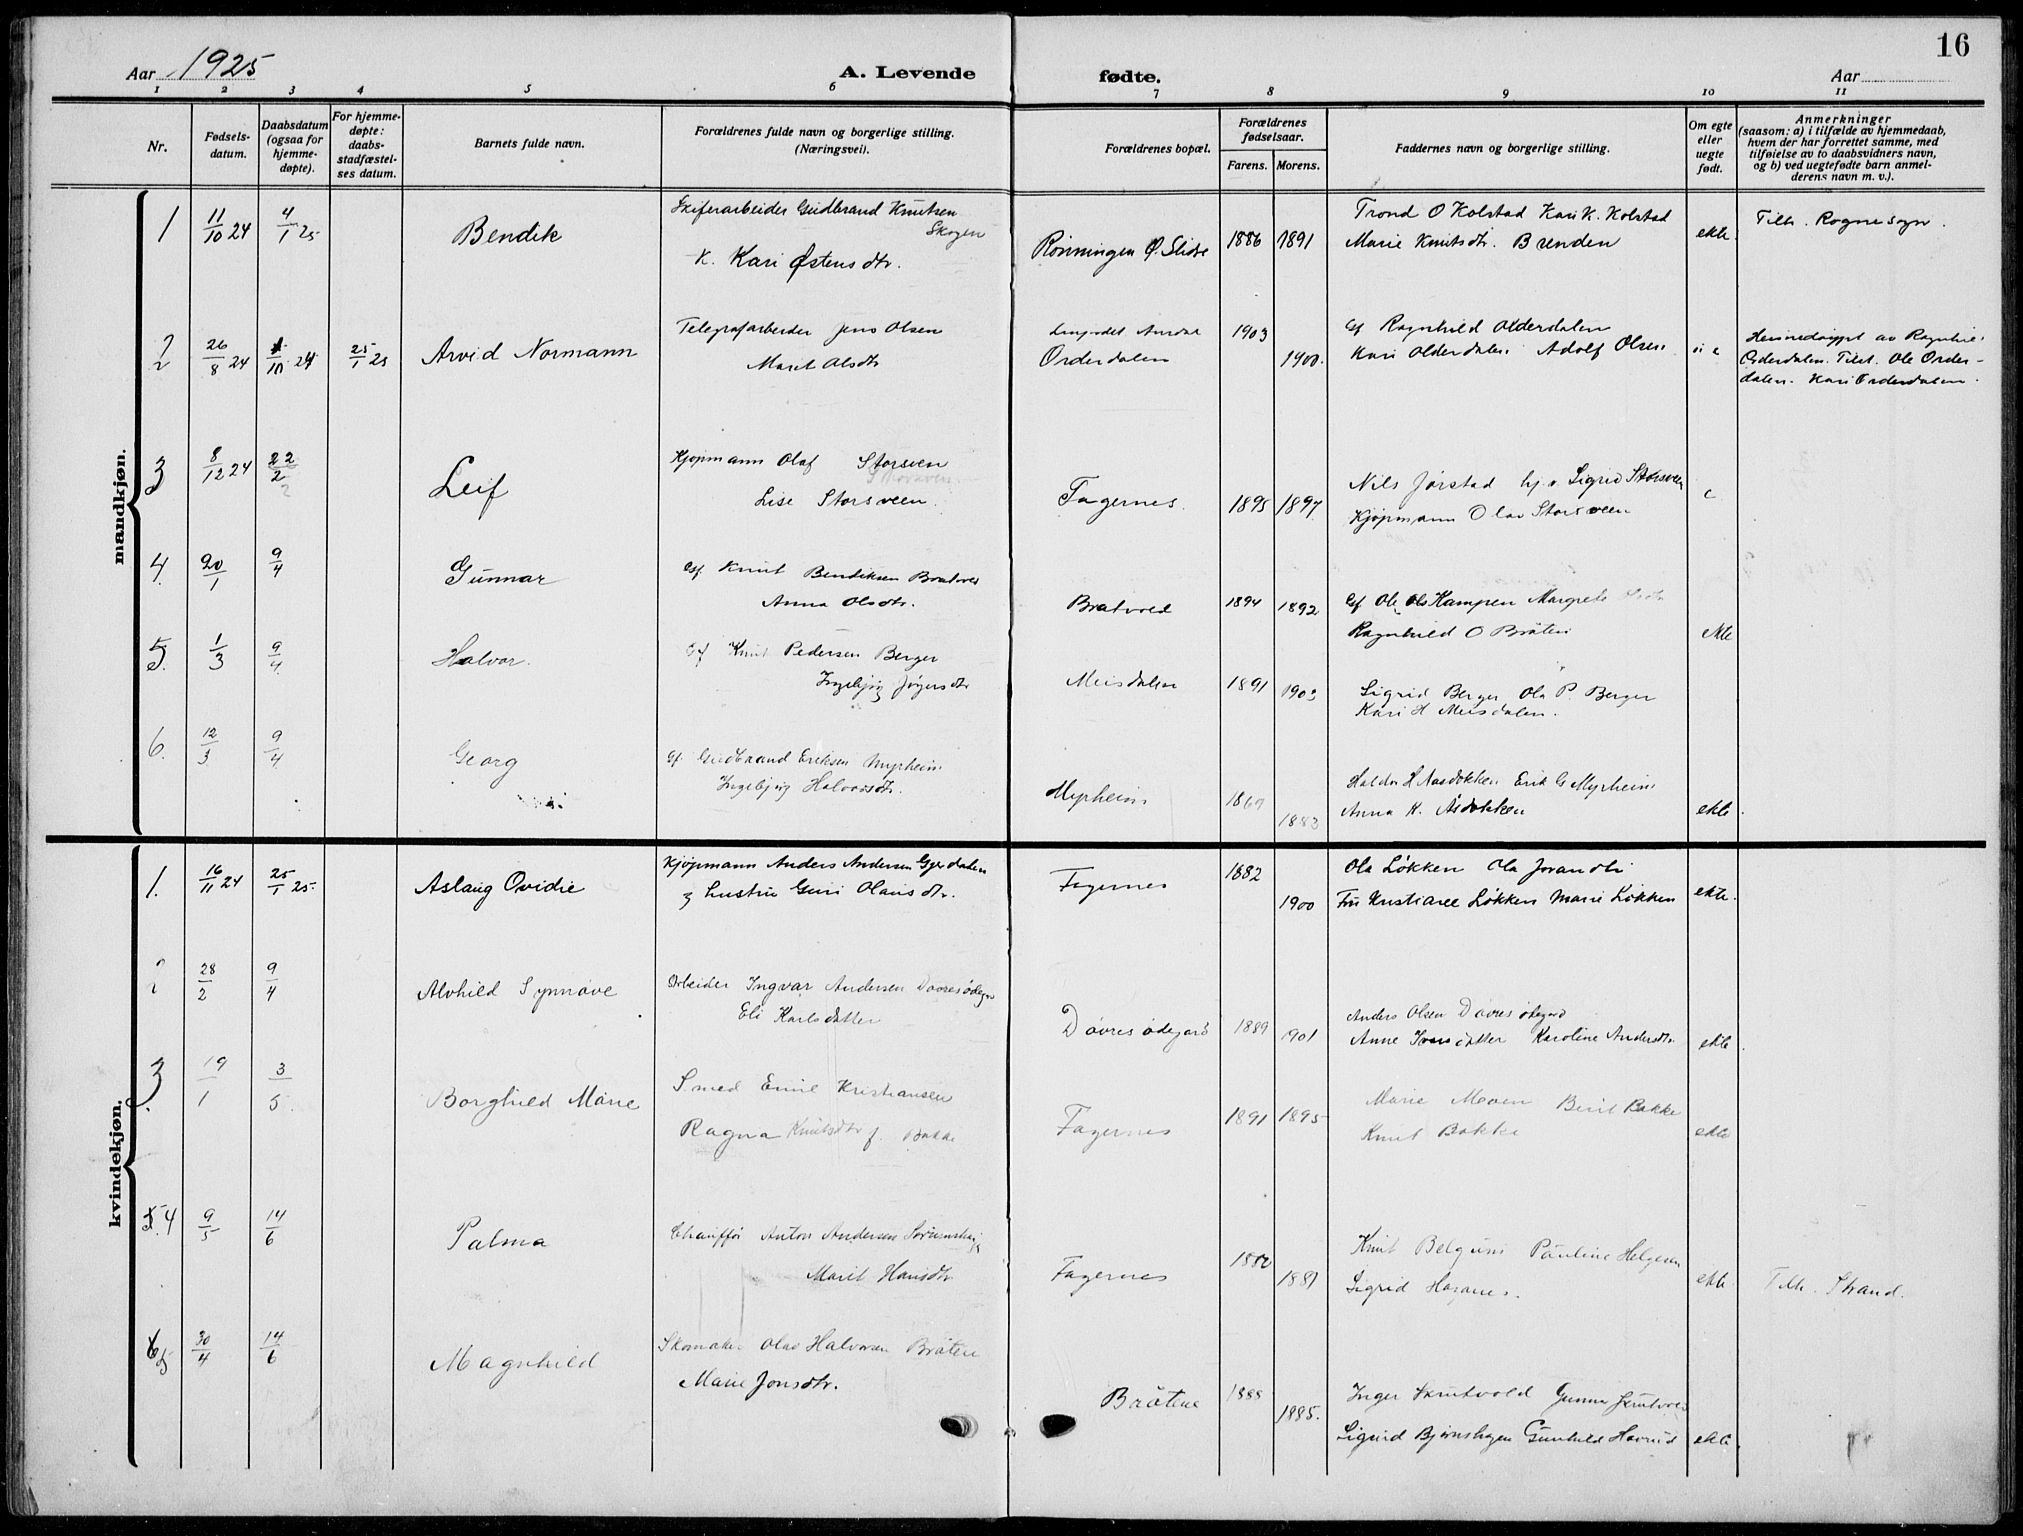 16
Aar 1925
A. Levende fødte.
Aar
1 2 3 4 5 6 7 8 9 10 11
Nr.
Fødsels-
datum.
Daabsdatum
(ogsaa for
hjemme-
døpte).
For hjemme-
døpte:
daabs-
stadfæstel-
ses datum.
Barnets fulde navn.
Forældrenes fulde navn og borgerlige stilling.
(Næringsvei).
Forældrenes bopæl.
Forældrenes
fødselsaar.
Farens. Morens.
Faddernes navn og borgerlige stilling.
Om egte
eller
uegte
født.
Anmerkninger
(saasom: a) i tilfælde av hjemmedaab,
hvem der har forrettet samme, med
tilføielse av to daabsvidners navn,
og b) ved uegtefødte barn anmel-
derens navn m. v.).
mandkjøn.
1 11/10 24 4/1 25 Bendik
Skiferarbeider Gudbrand Knutsen
Skogen
K. Kari Østensdtr.
Rønningen Ø. Slidre 1886 1891
Trond O Kolstad Kari K. Kolstad
Marie Knutsdtr. Brenden
ekte. Tilh. Rogne sogn.
2 26/8 24 /10 24 25/1 25 Arvid Normann
Telegrafarbeider Jens Olsen
Marit Olsdtr
Orderdalen 1903 1900.
Ragnhild Olderdalen
Kari Olderdalen Adolf Olsen
Hjemmedøpt av Ragnhild
Orderdalen. Tilst. Ole Order-
dalen. Kari Orderdalen.
3 8/12 24 22/2 Leif
Kjøpmann Olaf Storsveen
Lise Storsveen.
Fagernes. 1895 1897
Nils Jørstad Sigrid Storsveen
Kjøpmann Olav Storsveen
4. 20/1 9/4 Gunnar
Gf. Knut Bendiksen Bratvold
Anna Olsdtr.
Bratvold 1894 1892
Gf Ole Ols Kampen Margrete Olsdtr
Ragnhild O Bråten
ekte
5. 1/3 9/4 Halvor.
Gf Knut Pedersen Berger
Ingebjøg
Meisdalen 1891 1903
Sigrid Berger Ola P. Berger
Kari H Meisdalen.
6. 12/3 9/4 Georg
Gf. Gudbrand Eriksen Myrheim
Ingebjøg Halvorsdtr.
Myrheim 1883
Aasdokken Erik G Myrheim
Anna K. Åsdokken
ekte.
kvindekjøn.
1. 16/11 24 25/1 25. Aslaug Ovidie
Kjøpmann Anders Andersen Gjerdalen
og hustru Guri Olausdtr.
Fagernes 1882 1900
Ola Løkken Ola Jorandli
Fru Løkken Marie Løkken
ekte.
28/2 9/4 Alvhild Synnøve
Arbeider Ingvar Andersen Dovresødegård
Eli Karlsdatter
Dovresødegård 1889 1901
Anders Olsen Dovresødegård
Anne Karoline Andersdtr
ekte.
3. 19/1 3/5. Borghild Marie
Smed Emil Kristiansen
Ragna Knutsdtr f. Bakke
Fagernes 1891 1895
Marie Moen Berit Bakke
Knut Bakke
ekte
4 9/5 14/6 Palma
Chauffør Anton Andersen
Marit Hansdtr
Fagernes 1880 1881
Knut Belgum Pauline Helgesen
Sigrid
ekte. Tilh. Strand.
5 30/4 14/6 Magnhild
Skomaker Olav Halvorsen Bråten
Marie Jonsdtr.
Bråtene 1888 1885.
Inger Skrutvold Gunnar Skrutvold
Sigrid Bjørnshagen Gunhild
ekte.